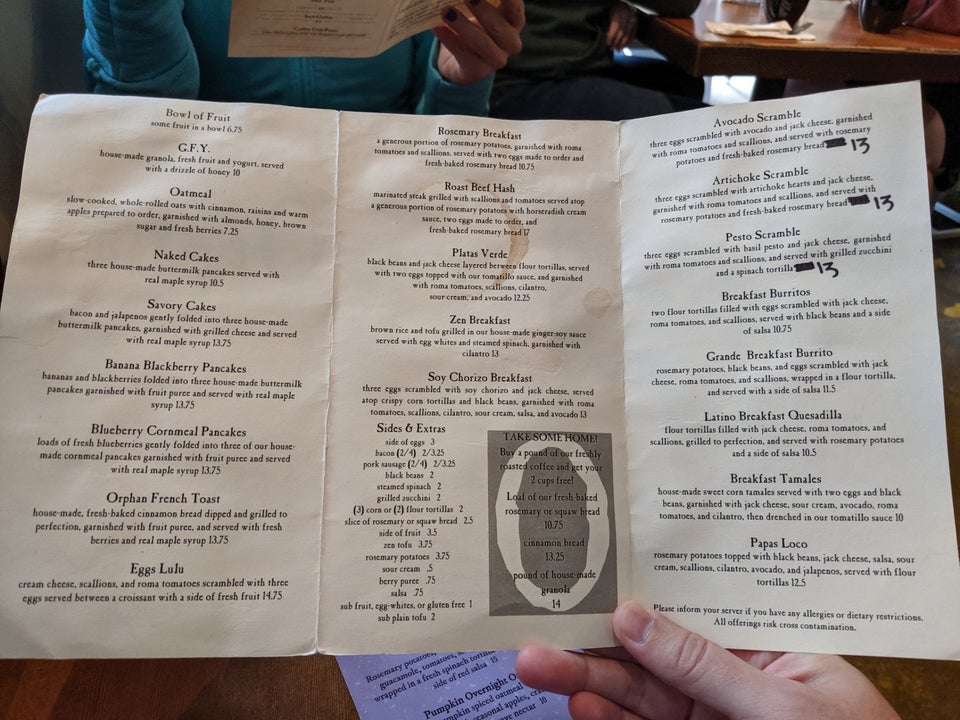 Bowl of Fruit
some fruit in a bowl 6.75
G.F.Y.
house-made granola, fresh fruit and yogurt, served
with a drizzle of honey 10
Oatmeal
slow-cooked, whole-rolled oats with cinnamon, raisins and warm
apples prepared to order, garnished with almonds, honey, brown
sugar and fresh berries 7.25
Naked Cakes
three house-made buttermilk pancakes served with
real maple syrup 10.5
Savory Cakes
bacon and jalapenos gently folded into three house-made
buttermilk pancakes, garnished with grilled cheese and served
with real maple syrup 13.75
Banana Blackberry Pancakes
bananas and blackberries folded into three house-made buttermilk
pancakes garnished with fruit puree and served with real maple
syrup 13.75
Blueberry Cornmeal Pancakes
loads of fresh blueberries gently folded into three of our house-
made cornmeal pancakes garnished with fruit puree and served
with real maple syrup 13.75
Orphan French Toast
house-made, fresh-baked cinnamon bread dipped and grilled to
perfection, garnished with fruit puree, and served with fresh
berries and real maple syrup 13.75
Eggs Lulu
cream cheese, scallions, and roma tomatoes scrambled with three
eggs served between a croissant with a side of fresh fruit 14.75
Rosemary Breakfast
a generous portion of rosemary potatoes, garnished with roma
tomatoes and scallions, served with two eggs made to order and
fresh-baked rosemary bread 10.75
Roast Beef Hash
marinated steak grilled with scallions and tomatoes served atop
a generous portion of rosemary potatoes with horseradish cream
sauce, two eggs made to order, and
fresh-baked rosemary bread 17
Platas Verde
black beans and jack cheese layered between flour tortillas, served
with two eggs topped with our tomatillo sauce, and garnished
with roma tomatoes, scallions, cilantro,
sour cream, and avocado 12.25
Zen Breakfast
brown rice and tofu grilled in our house-made ginger-soy sauce
served with egg whites and steamed spinach, garnished with
cilantro 13
Soy Chorizo Breakfast
three eggs scrambled with soy chorizo and jack cheese, served
atop crispy corn tortillas and black beans, garnished with roma
tomatoes, scallions, cilantro, sour cream, salsa, and avocado 13
Sides & Extras
side of eggs 3
bacon (2/4) 2/3.25
pork sausage (2/4) 2/3.25
black beans 2
steamed spinach 2
grilled zucchini 2
(3) corn or (2) flour tortillas 2
slice of rosemary or squaw bread 2.5
side of fruit 3.5
zen tofu 3.75
rosemary potatoes 3.75
sour cream .5
berry puree .75
salsa .75
sub fruit, egg-whites, or gluten free 1
sub plain tofu 2
TAKE SOME HOME!
Buy a pound of our freshly
roasted coffee and get your
2 cups free!
Loaf of our fresh-baked
rosemary or squaw bread
10.75
cinnamon bread
13.25
pound of house-made
granola
14
Avocado Scramble
three eggs scrambled with avocado and jack cheese, garnished
with roma tomatoes and scallions, and served with rosemary
potatoes and fresh-baked rosemary bread 13
Artichoke Scramble
three eggs scrambled with artichoke hearts and jack cheese,
garnished with roma tomatoes and scallions, and served with
rosemary potatoes and fresh-baked rosemary bread 13
Pesto Scramble
three eggs scrambled with basil pesto and jack cheese, garnished
with roma tomatoes and scallions, and served with grilled zucchini
and a spinach tortilla 13
Breakfast Burritos
two flour tortillas filled with eggs scrambled with jack cheese,
roma tomatoes, and scallions, served with black beans and a side
of salsa 10.75
Grande Breakfast Burrito
rosemary potatoes, black beans, and eggs scrambled with jack
cheese, roma tomatoes, and scallions, wrapped in a flour tortilla,
and served with a side of salsa 11.5
Latino Breakfast Quesadilla
flour tortillas filled with jack cheese, roma tomatoes, and
scallions, grilled to perfection, and served with rosemary potatoes
and a side of salsa 10.5
Breakfast Tamales
house-made sweet corn tamales served with two eggs and black
beans, garnished with jack cheese, sour cream, avocado, roma
tomatoes, and cilantro, then drenched in our tomatillo sauce 10
Papas Loco
rosemary potatoes topped with black beans, jack cheese, salsa, sour
cream, scallions, cilantro, avocado, and jalapenos, served with flour
tortillas 12.5
Please inform your server if you have any allergies or dietary restrictions.
All offerings risk cross contamination.
Rosemary potatoes,
guacamole, tomatoes,
wrapped in a fresh spinach
side of red salsa 15
Pumpkin Overnight
spiced oatmeal
seasonal apples,
nectar 10